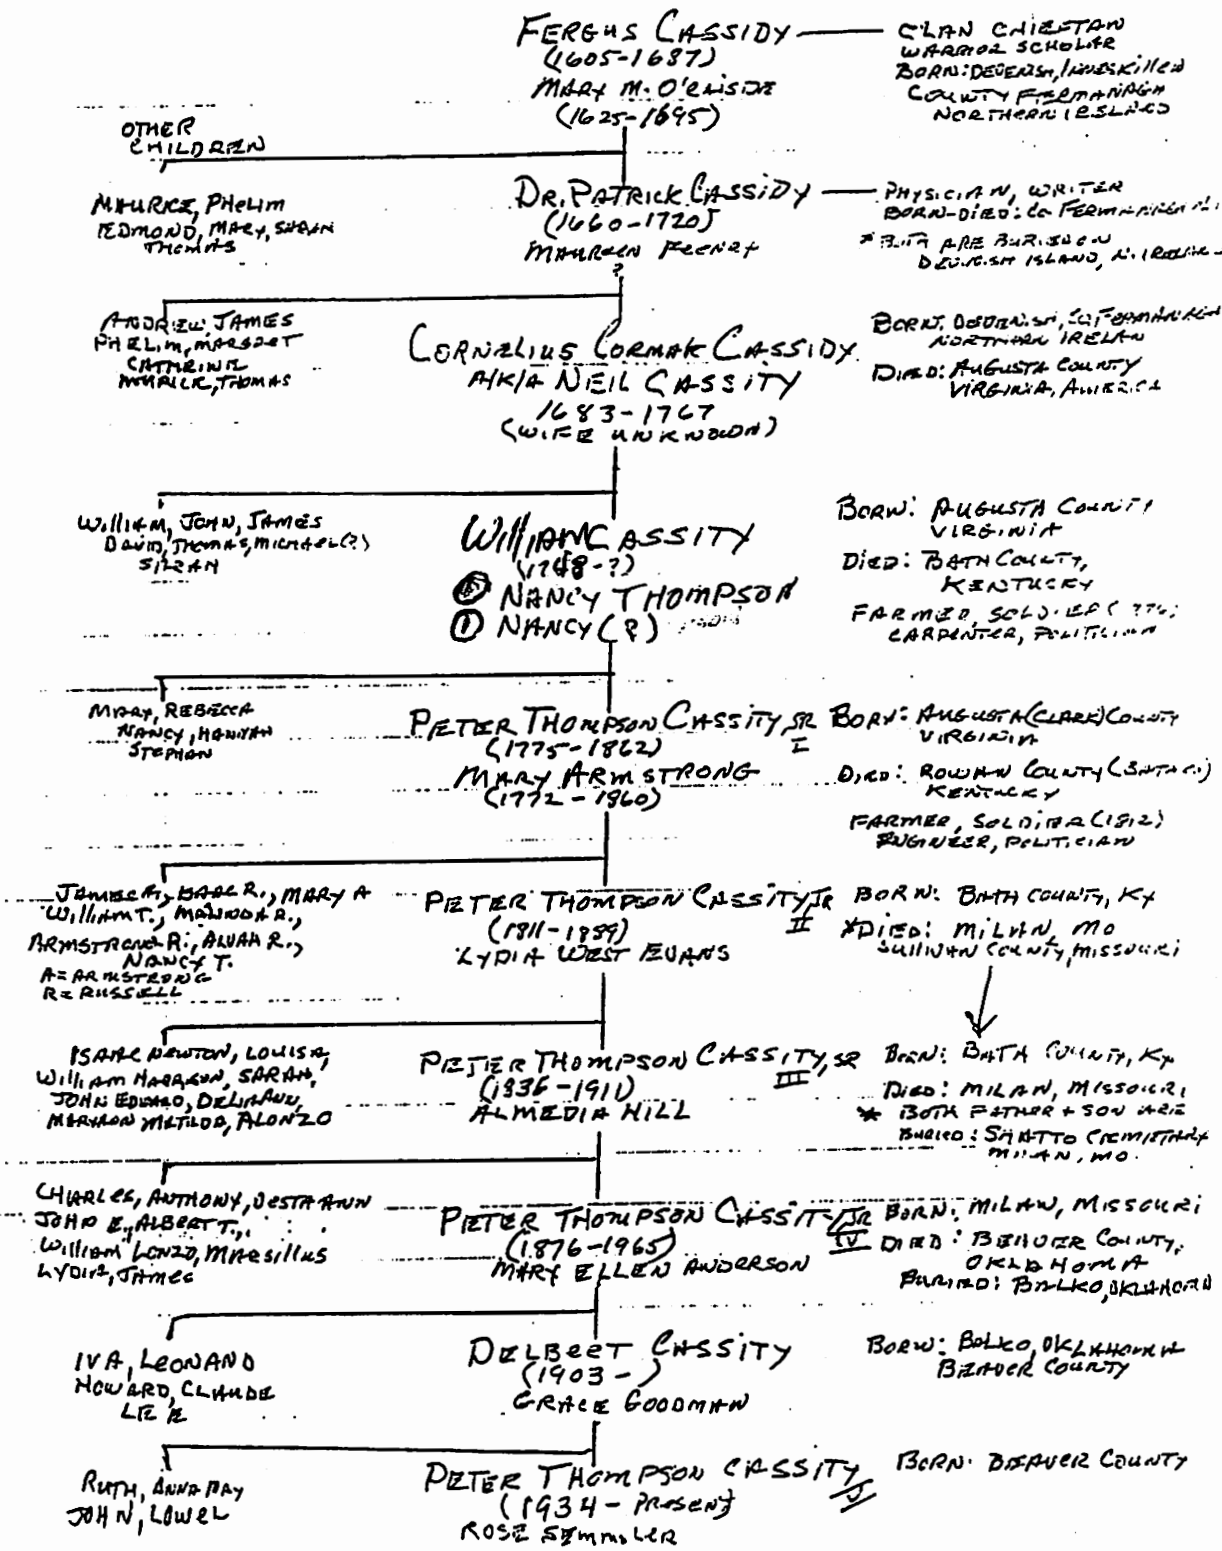 FERGUS CASSIDY
(1605-1687)
MARY M. O'
(1625-1695)
CLAN CHIEFTAN
WARRIOR SCHOLAR
BORN: DEVENISH/INNESKILLEN
COUNTY FERMANAGH
NORTHERN IRELAND
OTHER
CHILDREN
MAURICE, PHELIM
EDMOND, MARY,
THOMAS
DR. PATRICK CASSIDY
(1660-1720)
MAUREEN FEENEY
?
PHYSICIAN, WRITER
BORN-DIED: CO FERMANAGH
* BOTH ARE BURIED ON
DEVENISH ISLAND, N. IRELAND
ANDREW, JAMES
PHELIM, MARGARET
CATHRINE
THOMAS
CORNELIUS CORMAK CASSIDY
A/K/A NEIL CASSITY
1683-1767
(WIFE UNKNOWN)
BORN: DEVENISH, CO, FERMANAGH
NORTHERN IRELAN
DIED: AUGUSTA COUNTY
VIRGINIA, AMERICA
WILLIAM, JOHN, JAMES
DAVID, THOMAS, MICHAEL(?)
WILLIAM CASSITY
(1748-?)
NANCY THOMPSON
① NANCY (?)
BORN: AUGUSTA COUNTY
VIRGINIA
DIED: BATH COUNTY,
KENTUCKY
FARMED, SOLDIER (
CARPENTER, POLITICIAN
MARY, REBECCA
NANCY, HANNAH
STEPHAN
PETER THOMPSON CASSITY, SR
I
(1775-1862)
MARY ARMSTRONG
(1772-1860)
BORN: AUGUSTA (CLARK) COUNTY
VIRGINIA
DIED: ROWAN COUNTY (BATH CO.)
KENTUCKY
FARMER, SOLDIER (1812)
ENGINEER, POLITICIAN
JAMES R., ISAAC R., MARY A
WILLIAM T., MALINDA R.,
ARMSTRONG R., ALVAH R.,
NANCY T.
A = ARMSTRONG
R = RUSSELL
PETER THOMPSON CASSITY, JR
II
(1811-1889)
LYDIA WEST EVANS
BORN: BATH COUNTY, KY
*DIED: MILAN, MO
SULLIVAN COUNTY, MISSOURI
ISAAC NEWTON, LOUISA,
WILLIAM HARRISON, SARAH,
JOHN EDWARD,
MATILDA, ALONZO
PETER THOMPSON CASSITY, SR
III
(1836-1911)
ALMEDIA HILL
BORN: BATH COUNTY, KY
DIED: MILAN, MISSOURI
* BOTH FATHER + SON ARE
BURIED: SHATTO CEMETARY
MILAN, MO.
CHARLES, ANTHONY, DESTA ANN
JOHN E., ALBERT T.,
WILLIAM LONZO, MARSILLUS
LYDIA, JAMES
PETER THOMPSON CASSITY, JR
IV
(1876-1965)
MARY ELLEN ANDERSON
BORN: MILAN, MISSOURI
DIED: BEAVER COUNTY,
OKLAHOMA
BURIED: BALKO, OKLAHOMA
IVA, LEONARD
HOWARD, CLAUDE
LEE
DELBERT CASSITY
(1903- )
GRACE GOODMAN
BORN: BALKO, OKLAHOMA
BEAVER COUNTY
RUTH, ANNA MAY
JOHN, LOWEL
PETER THOMPSON CASSITY
V
(1934-PRESENT)
ROSE SEMMLER
BORN: BEAVER COUNTY